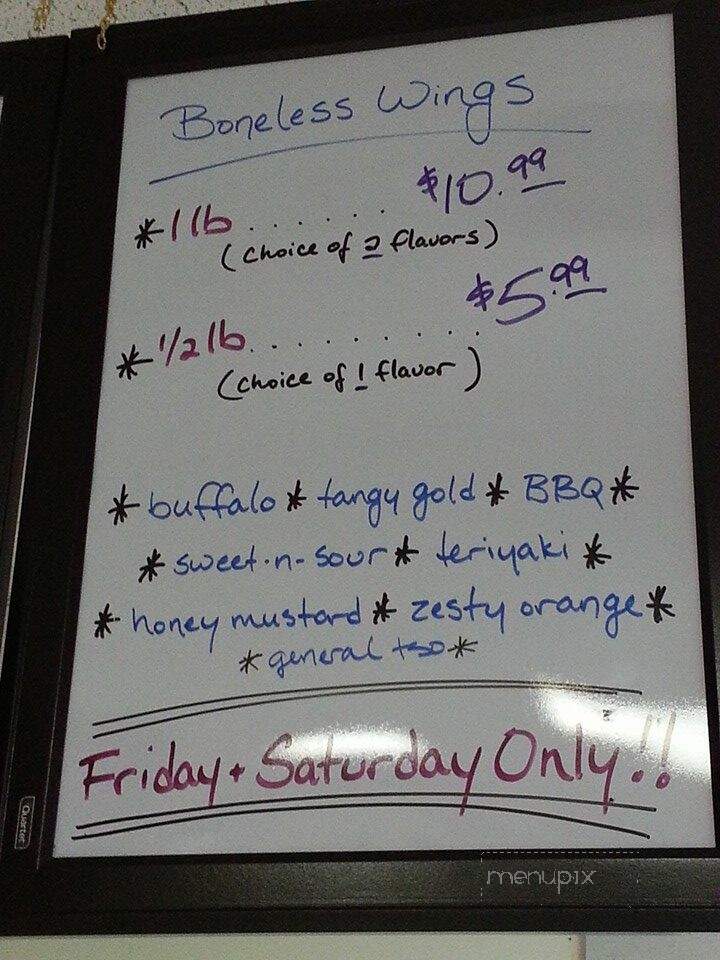 Boneless Wings
* 1 lb . . . . . . . $10.99
(choice of 2 flavors)
* 1/2 lb . . . . . . . . . $5.99
(choice of 1 flavor)
* buffalo * tangy gold * BBQ *
* sweet-n-sour * teriyaki *
* honey mustard * zesty orange *
* general tso *
Friday + Saturday Only!!
Quartet
menupix